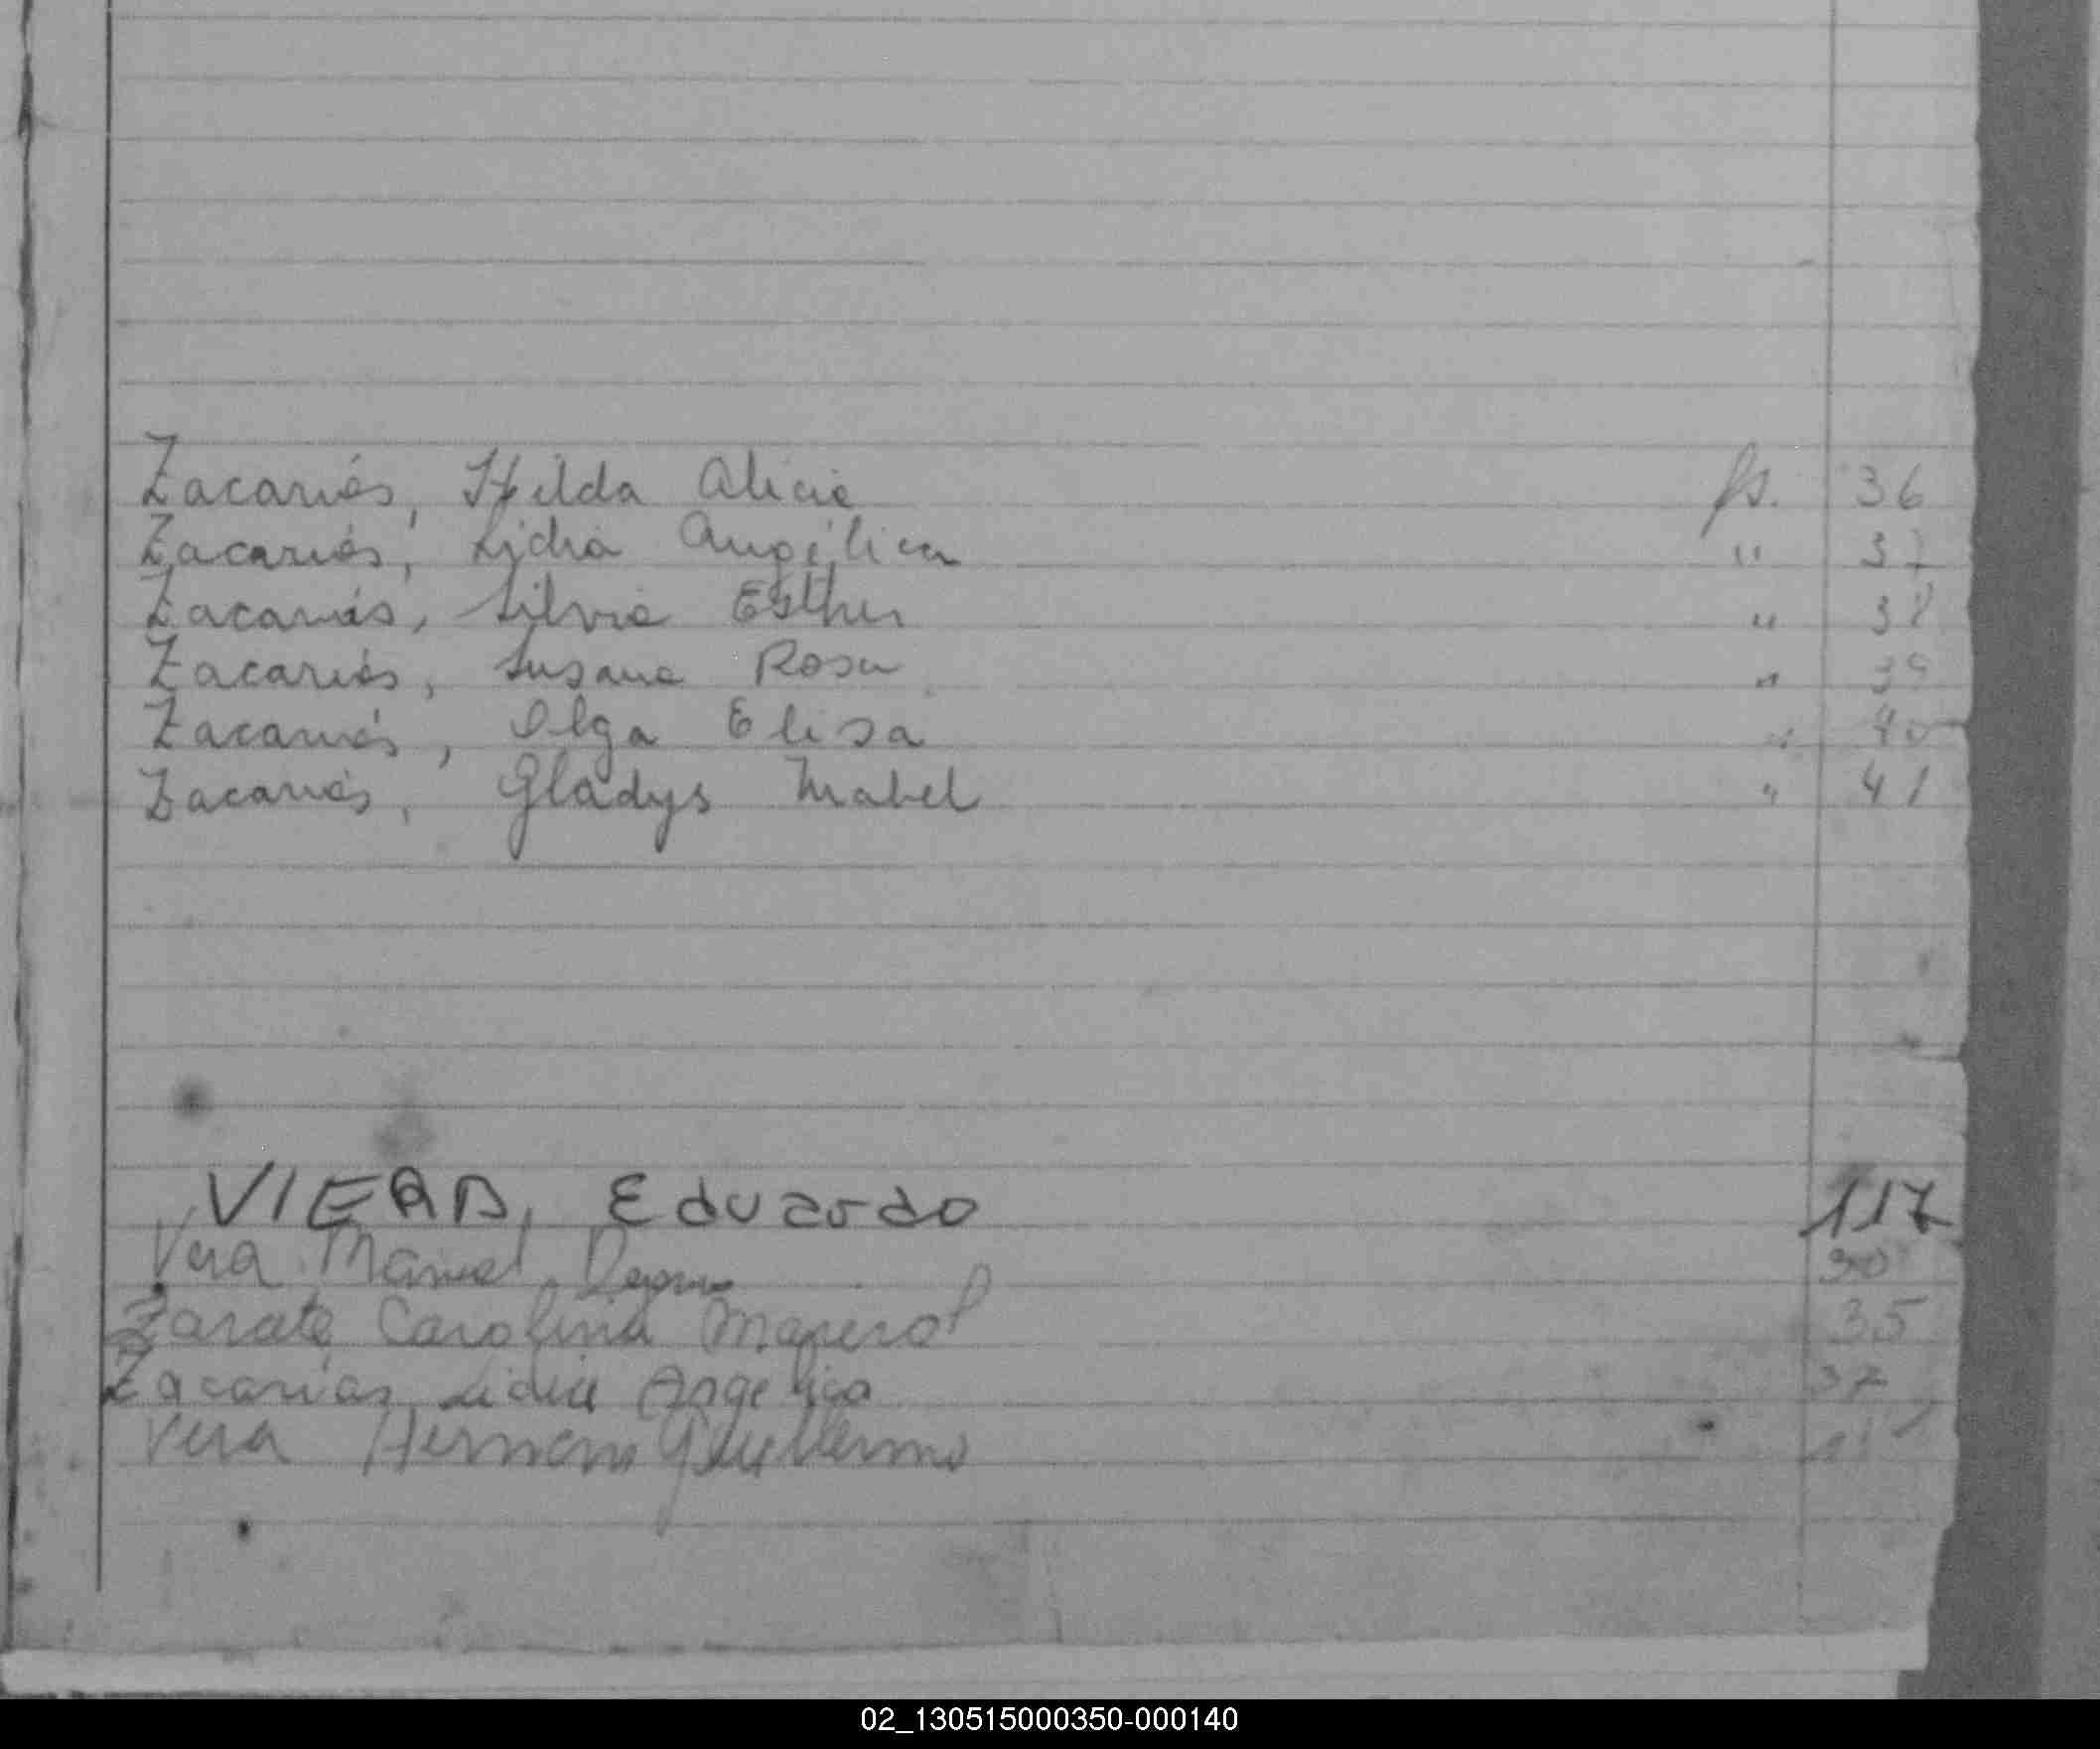 Zacarías, Hilda Alicia fs. 36
Zacarías, Lidia Angélica " 37
Zacarías, Silvia Esther " 38
Zacarías, Susana Rosa " 39
Zacarías, Olga Elisa " 40
Zacarías, Gladys Mabel " 41
VIERA, Eduardo 117
Vera Manuel 30
Zarate Carolina 35
Zacarias Lidia Angelica 37
Vera Hernan Guillermo
02_130515000350-000140